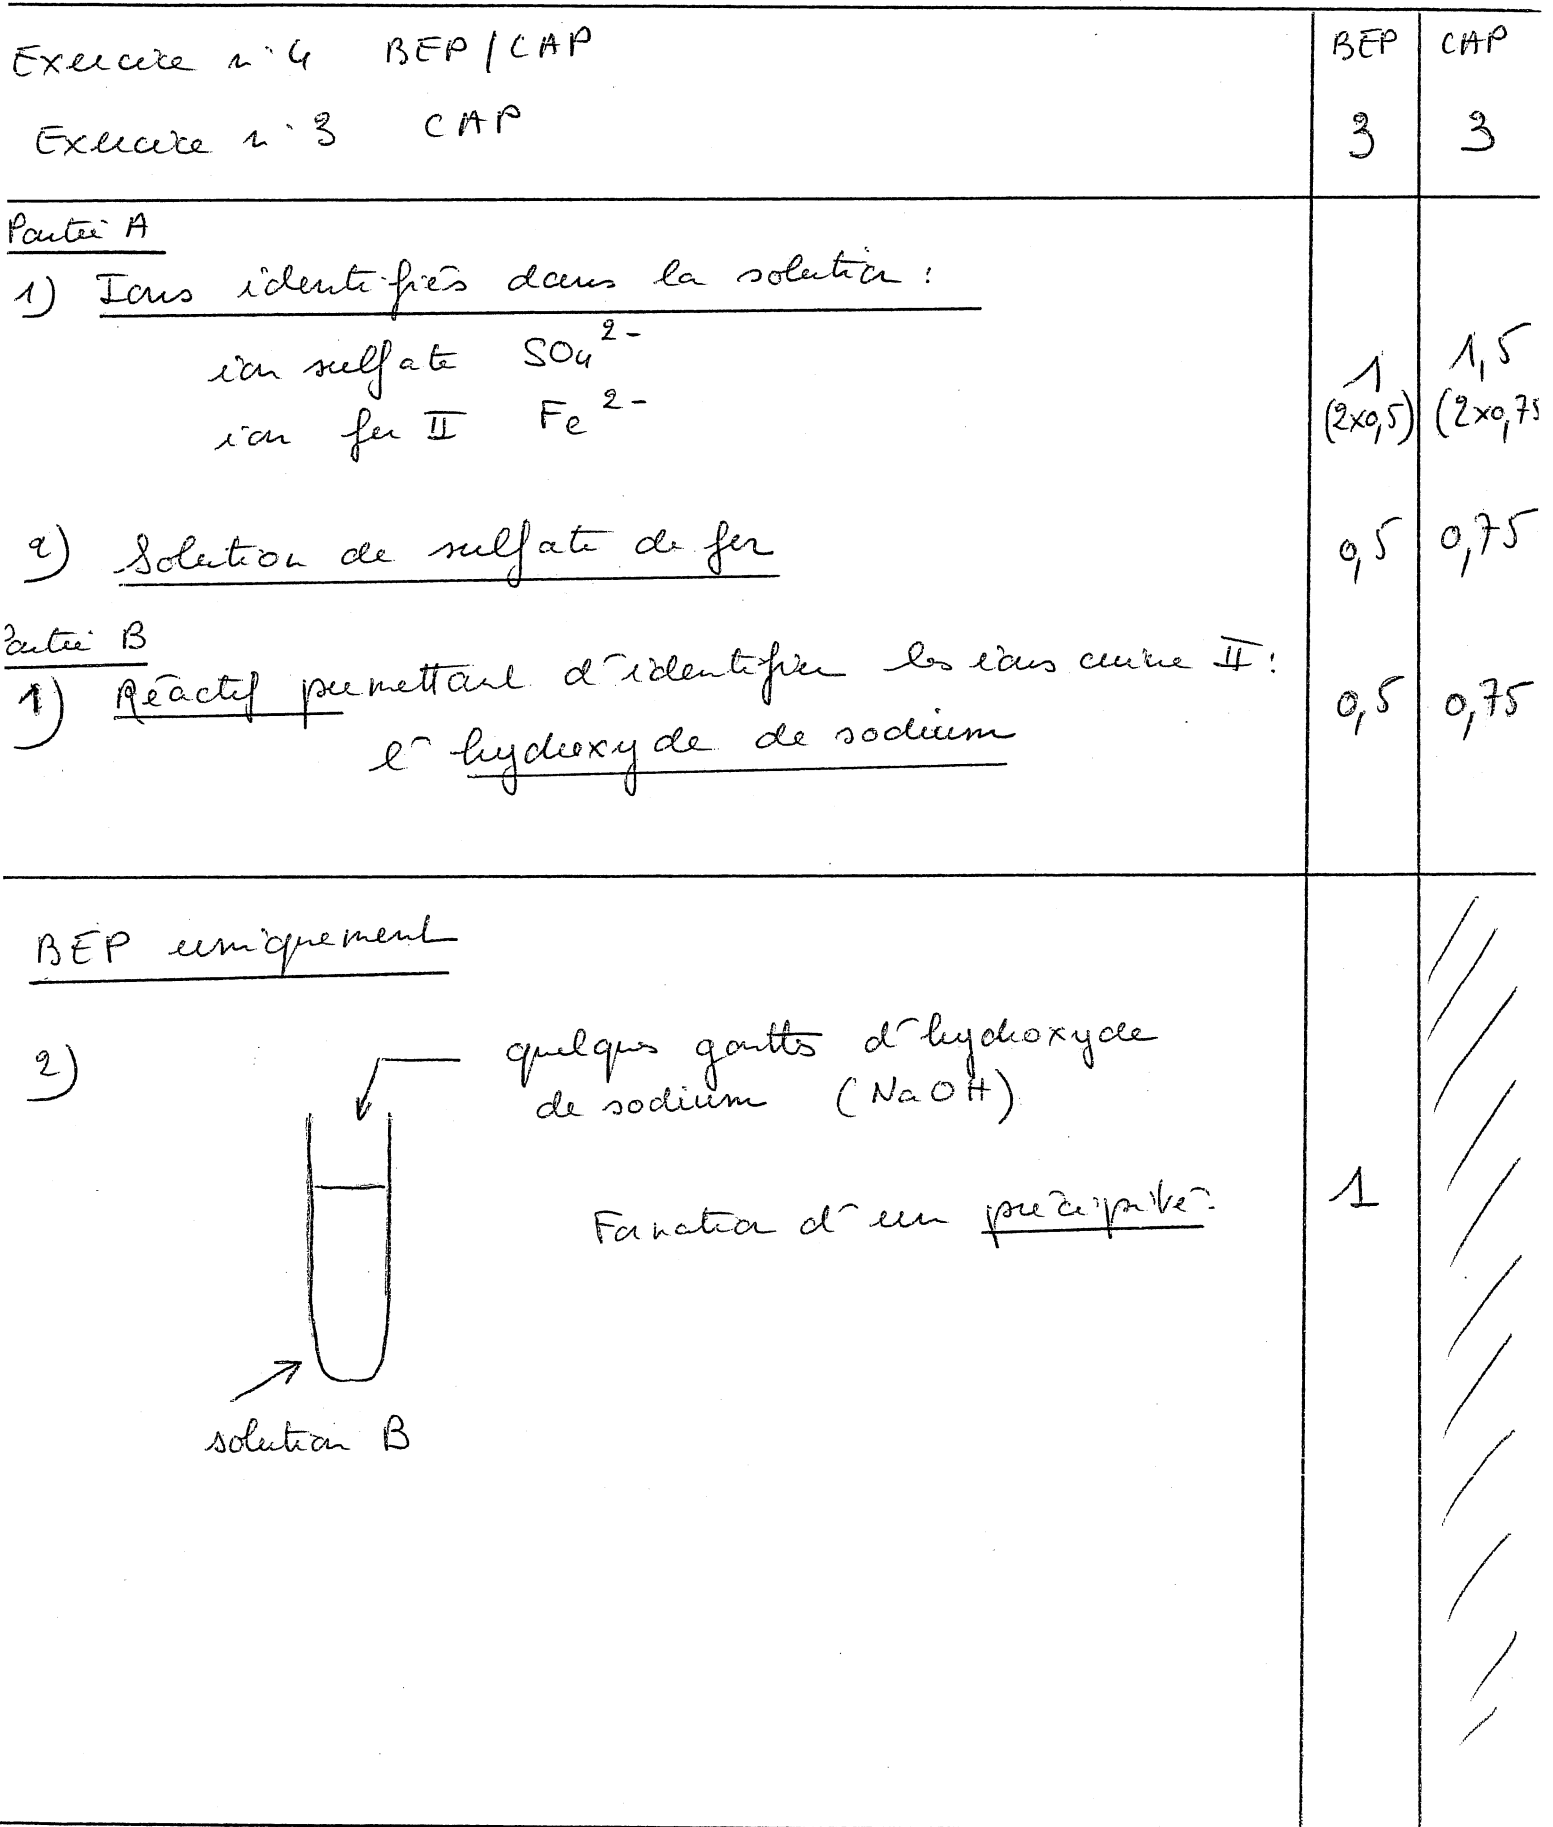 Exercice n° 4 BEP/CAP BEP CAP
Exercice n° 3 CAP 3 3
Partie A
1) Ions identifiés dans la solution :
ion sulfate SO4 2- 1 1,5
ion fer II Fe 2- (2x0,5) (2x0,75
2) Solution de sulfate de fer 0,5 0,75
Partie B
1) Réactif permettant d'identifier les ions cuivre II : 0,5 0,75
l'hydroxyde de sodium
BEP uniquement
2) quelques gouttes d'hydroxyde
de sodium (NaOH)
Formation d'un précipité. 1
solution B